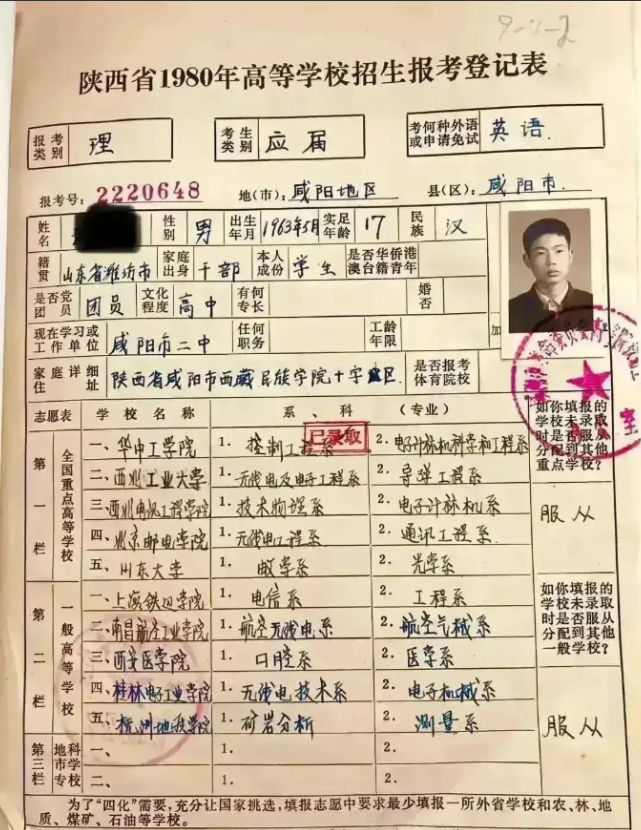 9-1-2
陕西省1980年高等学校招生报考登记表
报考类别 理 考生类别 应届 考何种外语或申请免试 英语.
报考号: 2220648 地(市): 咸阳地区 县(区): 咸阳市.
姓名 性别 男 出生年月 1963年5月 实足年龄 17 民族 汉
籍贯 山东省潍坊市 家庭出身 干部 本人成份 学生 是否华侨港澳台籍青年
是否党员团员 团员 文化程度 高中 有何专长 婚否
现在学习或工作单位 咸阳市二中 任何职务 工龄年限 加
家庭详细住址 陕西省咸阳市西藏民族学院十字 区 是否报考体育院校
志愿表 学校名称 系、科 (专业) 如你填报的学校未录取时是否服从分配到其他重点学校?
已录取
第一栏 全国重点高等学校
一、华中工学院 1. 控制工程系 2. 电子计祘机科学和工程系
二、西北工业大学 1. 无线电及电子工程系 2. 导弹工程系
三、西北电讯工程学院 1. 技术物理系 2. 电子计祘机系 服从
四、北京邮电学院 1. 无线电工程系 2. 通讯工程系
五、山东大学 1. 数学系 2. 光学系
第二栏 一般高等学校 如你填报的学校未录取时是否服从分配到其他一般学校?
一、上海铁道学院 1. 电信系 2. 工程系
二、南昌航空工业学院 1. 航空无线电系 2. 航空气械系
三、西安医学院 1. 口腔系 2. 医学系
四、桂林电子工业学院 1. 无线电技术系 2. 电子机械系 服从
五、 1. 矿岩分析 2. 测量系
第三栏 地市专科学校
一、 1. 2.
二、 1. 2.
为了“四化”需要,充分让国家挑选,填报志愿中要求最少填报一所外省学校和农、林、地
质、煤矿、石油等学校。